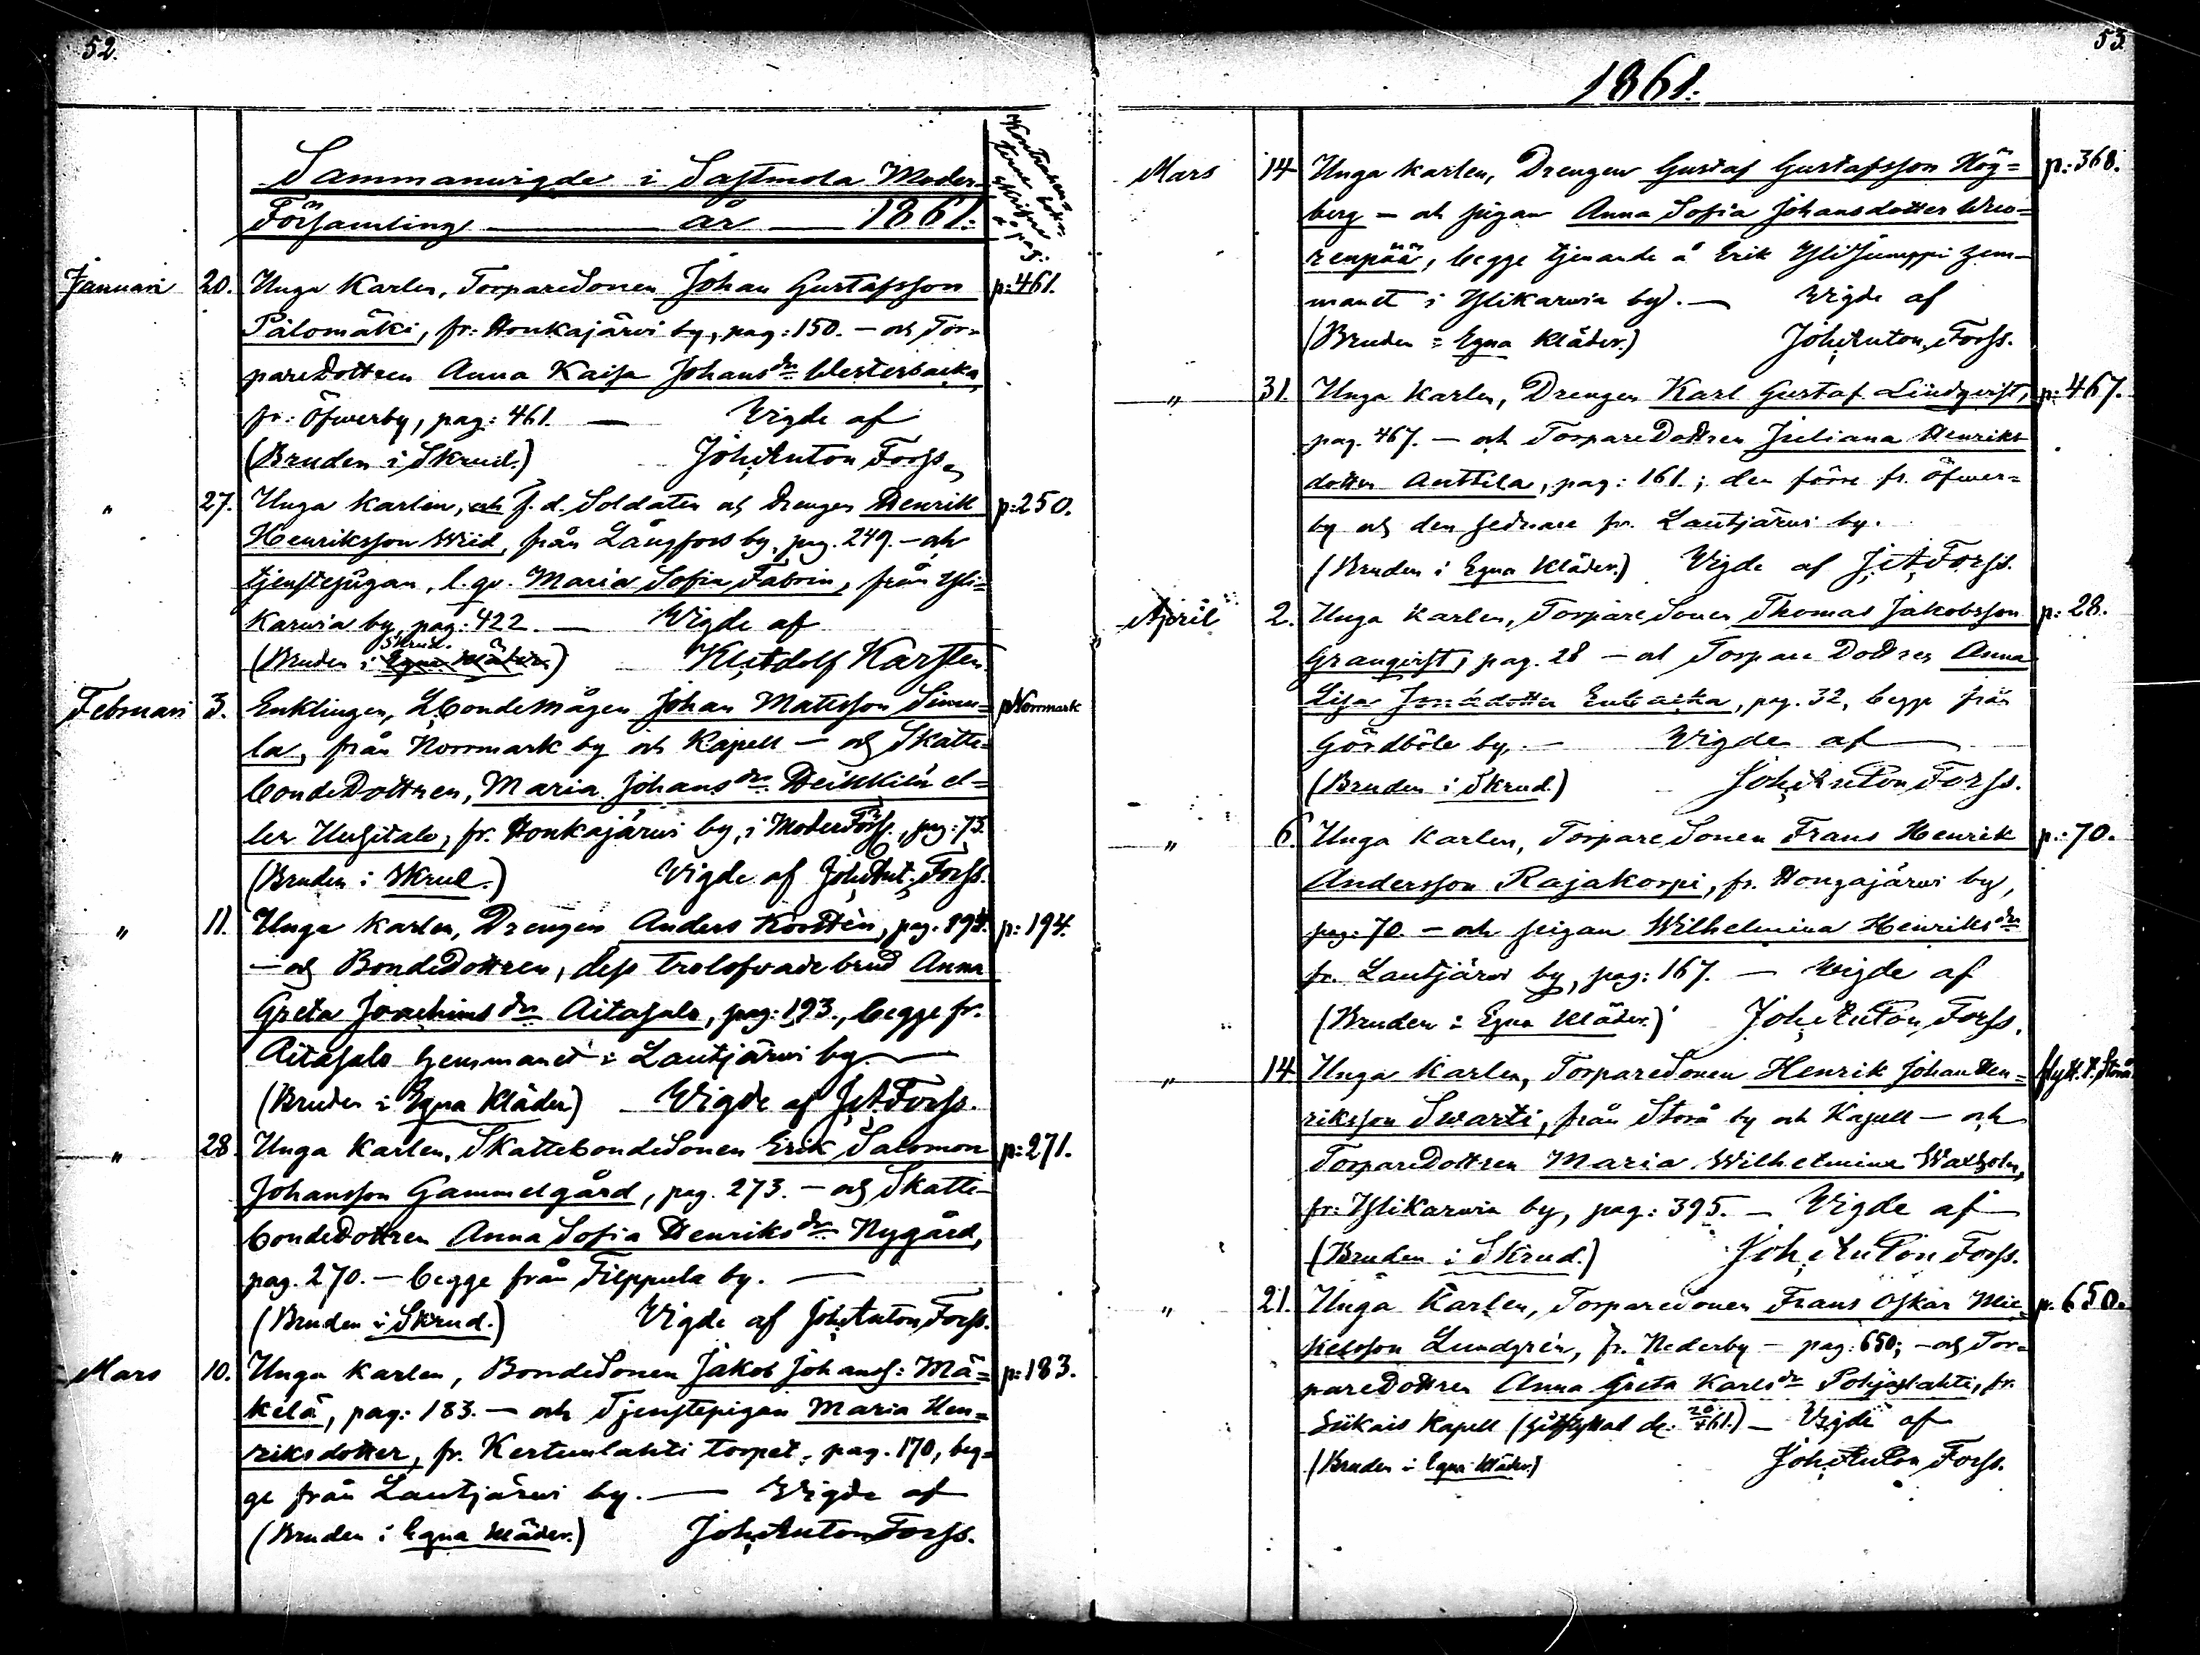 52.
Sammanwigde i Sastmola Moder-
Församling år 1861.
Januari 20. Unga Karlen, TorpareSonen Johan Gustafsson p: 461.
Pälomäki, fr: Honkajärwi by, pag: 150. — och Tor-
pareDottren Anna Kaisa Johansdr Westerbacka,
fr: Öfwerby, pag: 461. — Vigde af
(Bruden i Skrud.) Joh: Anton Forss.
" 27. Unga Karlen, och f. d. Soldaten och Drengen Henrik p: 250.
Henriksson Wiid, från Långfors by, pag. 249. — och
tjenstepigan, l. qv. Maria Sofia Fabrin, från Yli-
Karwia by, pag: 422. — Vigde af
Skrud.
(Bruden i Egna Kläder.) Kl: Adolf Karsten.
Februari 3. Enklingen, BondeMågen Johan Matsson Simu- p Norrmark
la, från Norrmark by och Kapell — och Skatte-
bondeDottren, Maria Johansdr Heikkilä el-
ler Uusitalo, fr. Honkajärwi by, i ModerFörs., pag: 73.
(Bruden i Skrud.) Vigde af Joh: Ant: Forss.
" 11. Unga Karlen, Drengen Anders Korttén, pag. 194. p: 194.
— och BondeDottren, dess trolofvade brud Anna
Greta Joachimsdr Aitasalo, pag: 193., begge fr.
Aitasalo hemmanet i Lautjärwi by. —
(Bruden i Egna Kläder) Vigde af J: A: Forss.
" 28. Unga Karlen, SkattebondeSonen Erik Salomon p: 271.
Johansson Gammelgård, pag. 273. — och Skatte-
bondeDottren Anna Sofia Henriksdr Nygård,
pag. 270. — begge från Filppula by. —
(Bruden i Skrud.) Vigde af Joh: Anton Forss.
Mars 10. Unga Karlen, BondeSonen Jakob Johanss: Mä- p: 183.
kelä, pag: 183. — och Tjenstepigan Maria Hen-
riksdotter, fr. Kertunlahti torpet, pag. 170, beg-
ge från Lautjärwi by. — Vigde af
(Bruden i Egna Kläder.) Joh: Anton Forss.
53.
1861.
Mars 14 Unga Karlen, Drengen Gustaf Gustafsson Hög- p: 368.
berg — och pigan Anna Sofia Johansdotter Wuo-
renpää, begge tjenande å Erik Ylisumppi hem-
manet i Ylikarwia by. — Vigde af
(Bruden i Egna Kläder.) Joh: Anton Forss.
" 31. Unga Karlen, Drengen Karl Gustaf Lindqvist, p: 467.
pag. 467. — och TorpareDottren Juliana Henriks
dotter Anttila, pag: 161.; den förre fr. Öfwer-
by och den sednare fr. Lautjärwi by.
(Bruden i Egna Kläder.) Vigde af J: A: Forss.
April 2. Unga Karlen, TorpareSonen Thomas Jakobsson p: 28.
Granqvist, pag. 28 — och Torpare Dottren Anna
Lisa dotter, pag. 32, begge från
Gårdböle by. — Vigde af —
(Bruden i Skrud.) Joh: Anton Forss.
" 6. Unga Karlen, TorpareSonen Frans Henrik p: 70.
Andersson Rajakorpi, fr. Hongajärwi by,
pag: 70. — och pigan Wilhelmina Henriksdr
fr. Lautjärwi by, pag: 167. — Vigde af
(Bruden i Egna Kläder.) Joh: Anton Forss.
" 14 Unga Karlen, TorpareSonen Henrik Johan Hen- flytt. t. Storå
riksson Swarti, från Storå by och Kapell — och
TorpareDottren Maria Wilhelmina Waxholm,
fr: Ylikarwia by, pag: 395. — Vigde af —
(Bruden i Skrud.) Joh: Anton Forss.
" 21. Unga Karlen, TorpareSonen Frans Oskar Mic- p. 650.
kelsson Lundgrén, fr. Nederby — pag: 650; — och Tor-
pareDottren Anna Greta Karlsdr Pohjaslahti, fr.
Siikais Kapell — Vigde af
(Bruden i Egna Kläder) Joh: Anton Forss.